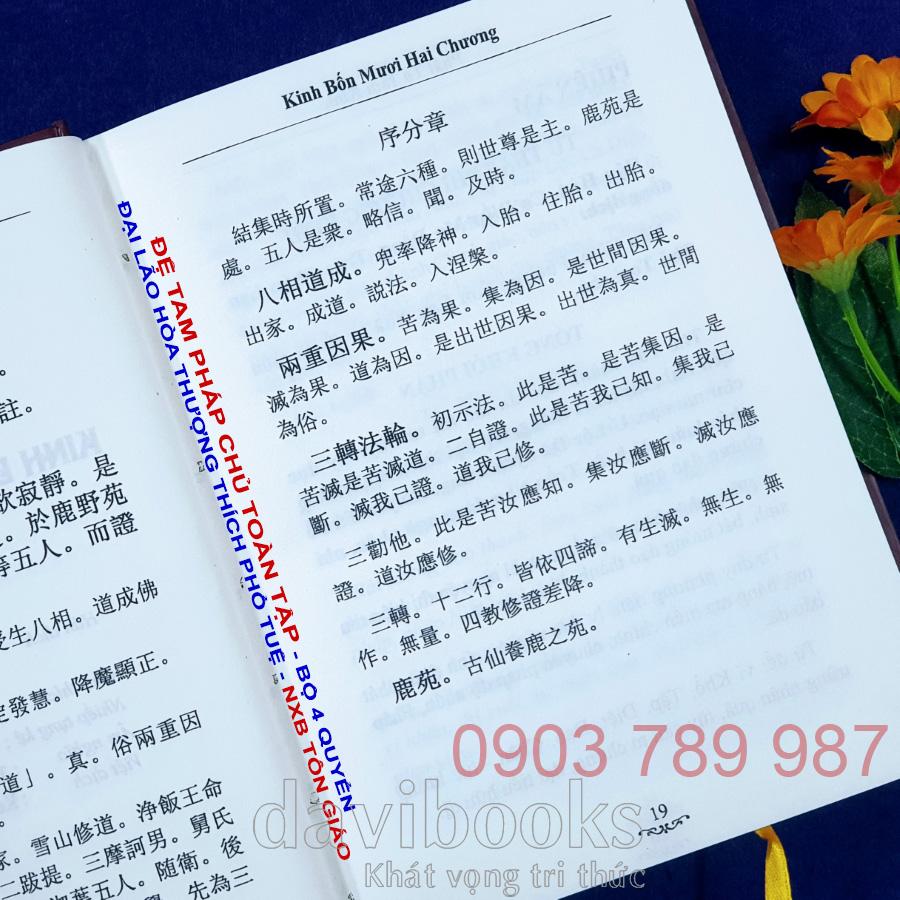 註。
歡寂靜。是
。於鹿野苑
等五人。而證
生八相。道成佛
定發慧。降魔顯正。
道」。真。俗兩重因
家。雪山修道。淨飯王命
二跋提。三摩訶男。舅氏
迦葉五人。随衛。後
學。先為三
Kinh Bốn Mươi Hai Chương
序分章
結集時所置。常途六種。則世尊是主。鹿苑是
處。五人是衆。略信。聞。及時。
八相道成。兜率降神。入胎。住胎。出胎。
出家。成道。説法。入涅槃。
兩重因果。苦為果。集為因。是世間因果。
滅為果。道為因。是出世因果。出世為真。世間
為俗。
三轉法輪。初示法。此是苦。是苦集因。是
苦滅是苦滅道。二自證。此是苦我已知。集我已
斷。滅我已證。道我已修。
三勸他。此是苦汝應知。集汝應斷。滅汝應
證。道汝應修。
三轉。十二行。皆依四諦。有生滅。無生。無
作。無量。四教修證差降。
鹿苑。古仙養鹿之苑。
19
ĐỆ TAM PHÁP CHỦ TOÀN TẬP - BỘ 4 QUYỂN
ĐẠI LÃO HÒA THƯỢNG THÍCH PHỔ TUỆ - NXB TÔN GIÁO
0903 789 987
davibooks
Khát vọng tri thức